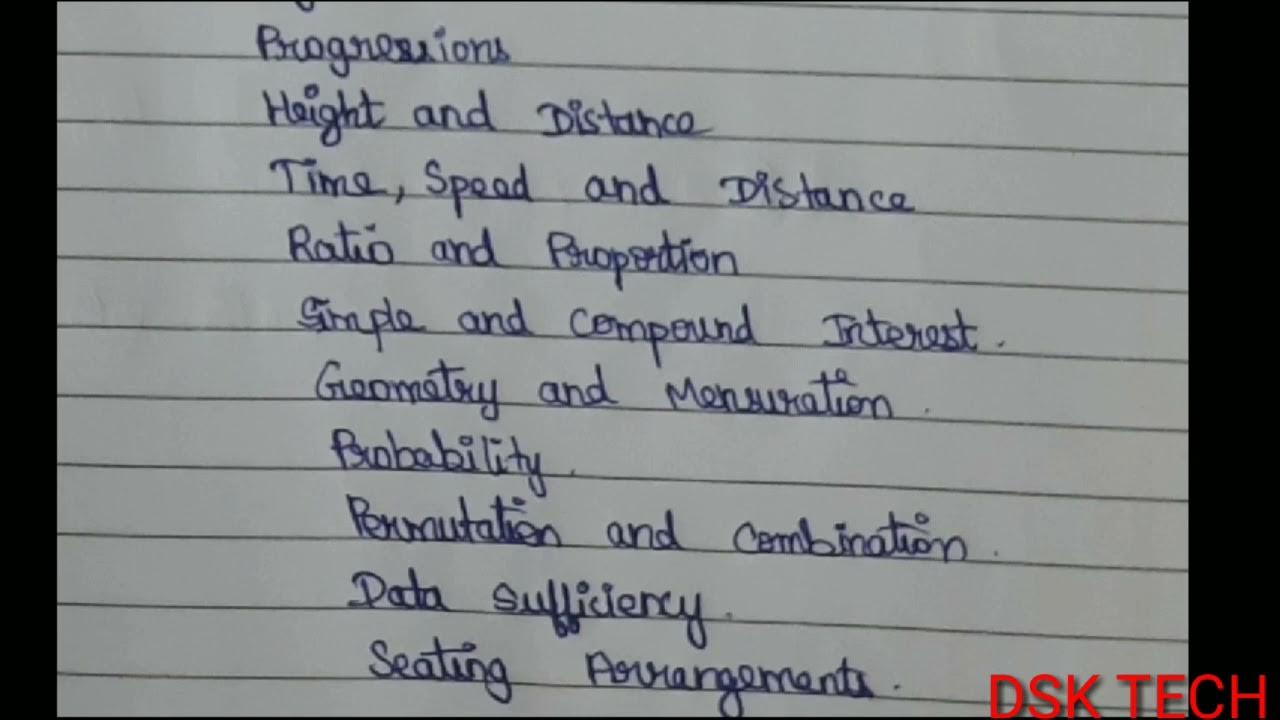 Progressions
Height and Distance
Time, Speed and Distance
Ratio and Proportion
Simple and Compound Interest.
Geometry and Mensuration.
Probability.
Permutation and Combination.
Data Sufficiency.
Seating Arrangements.
DSK TECH